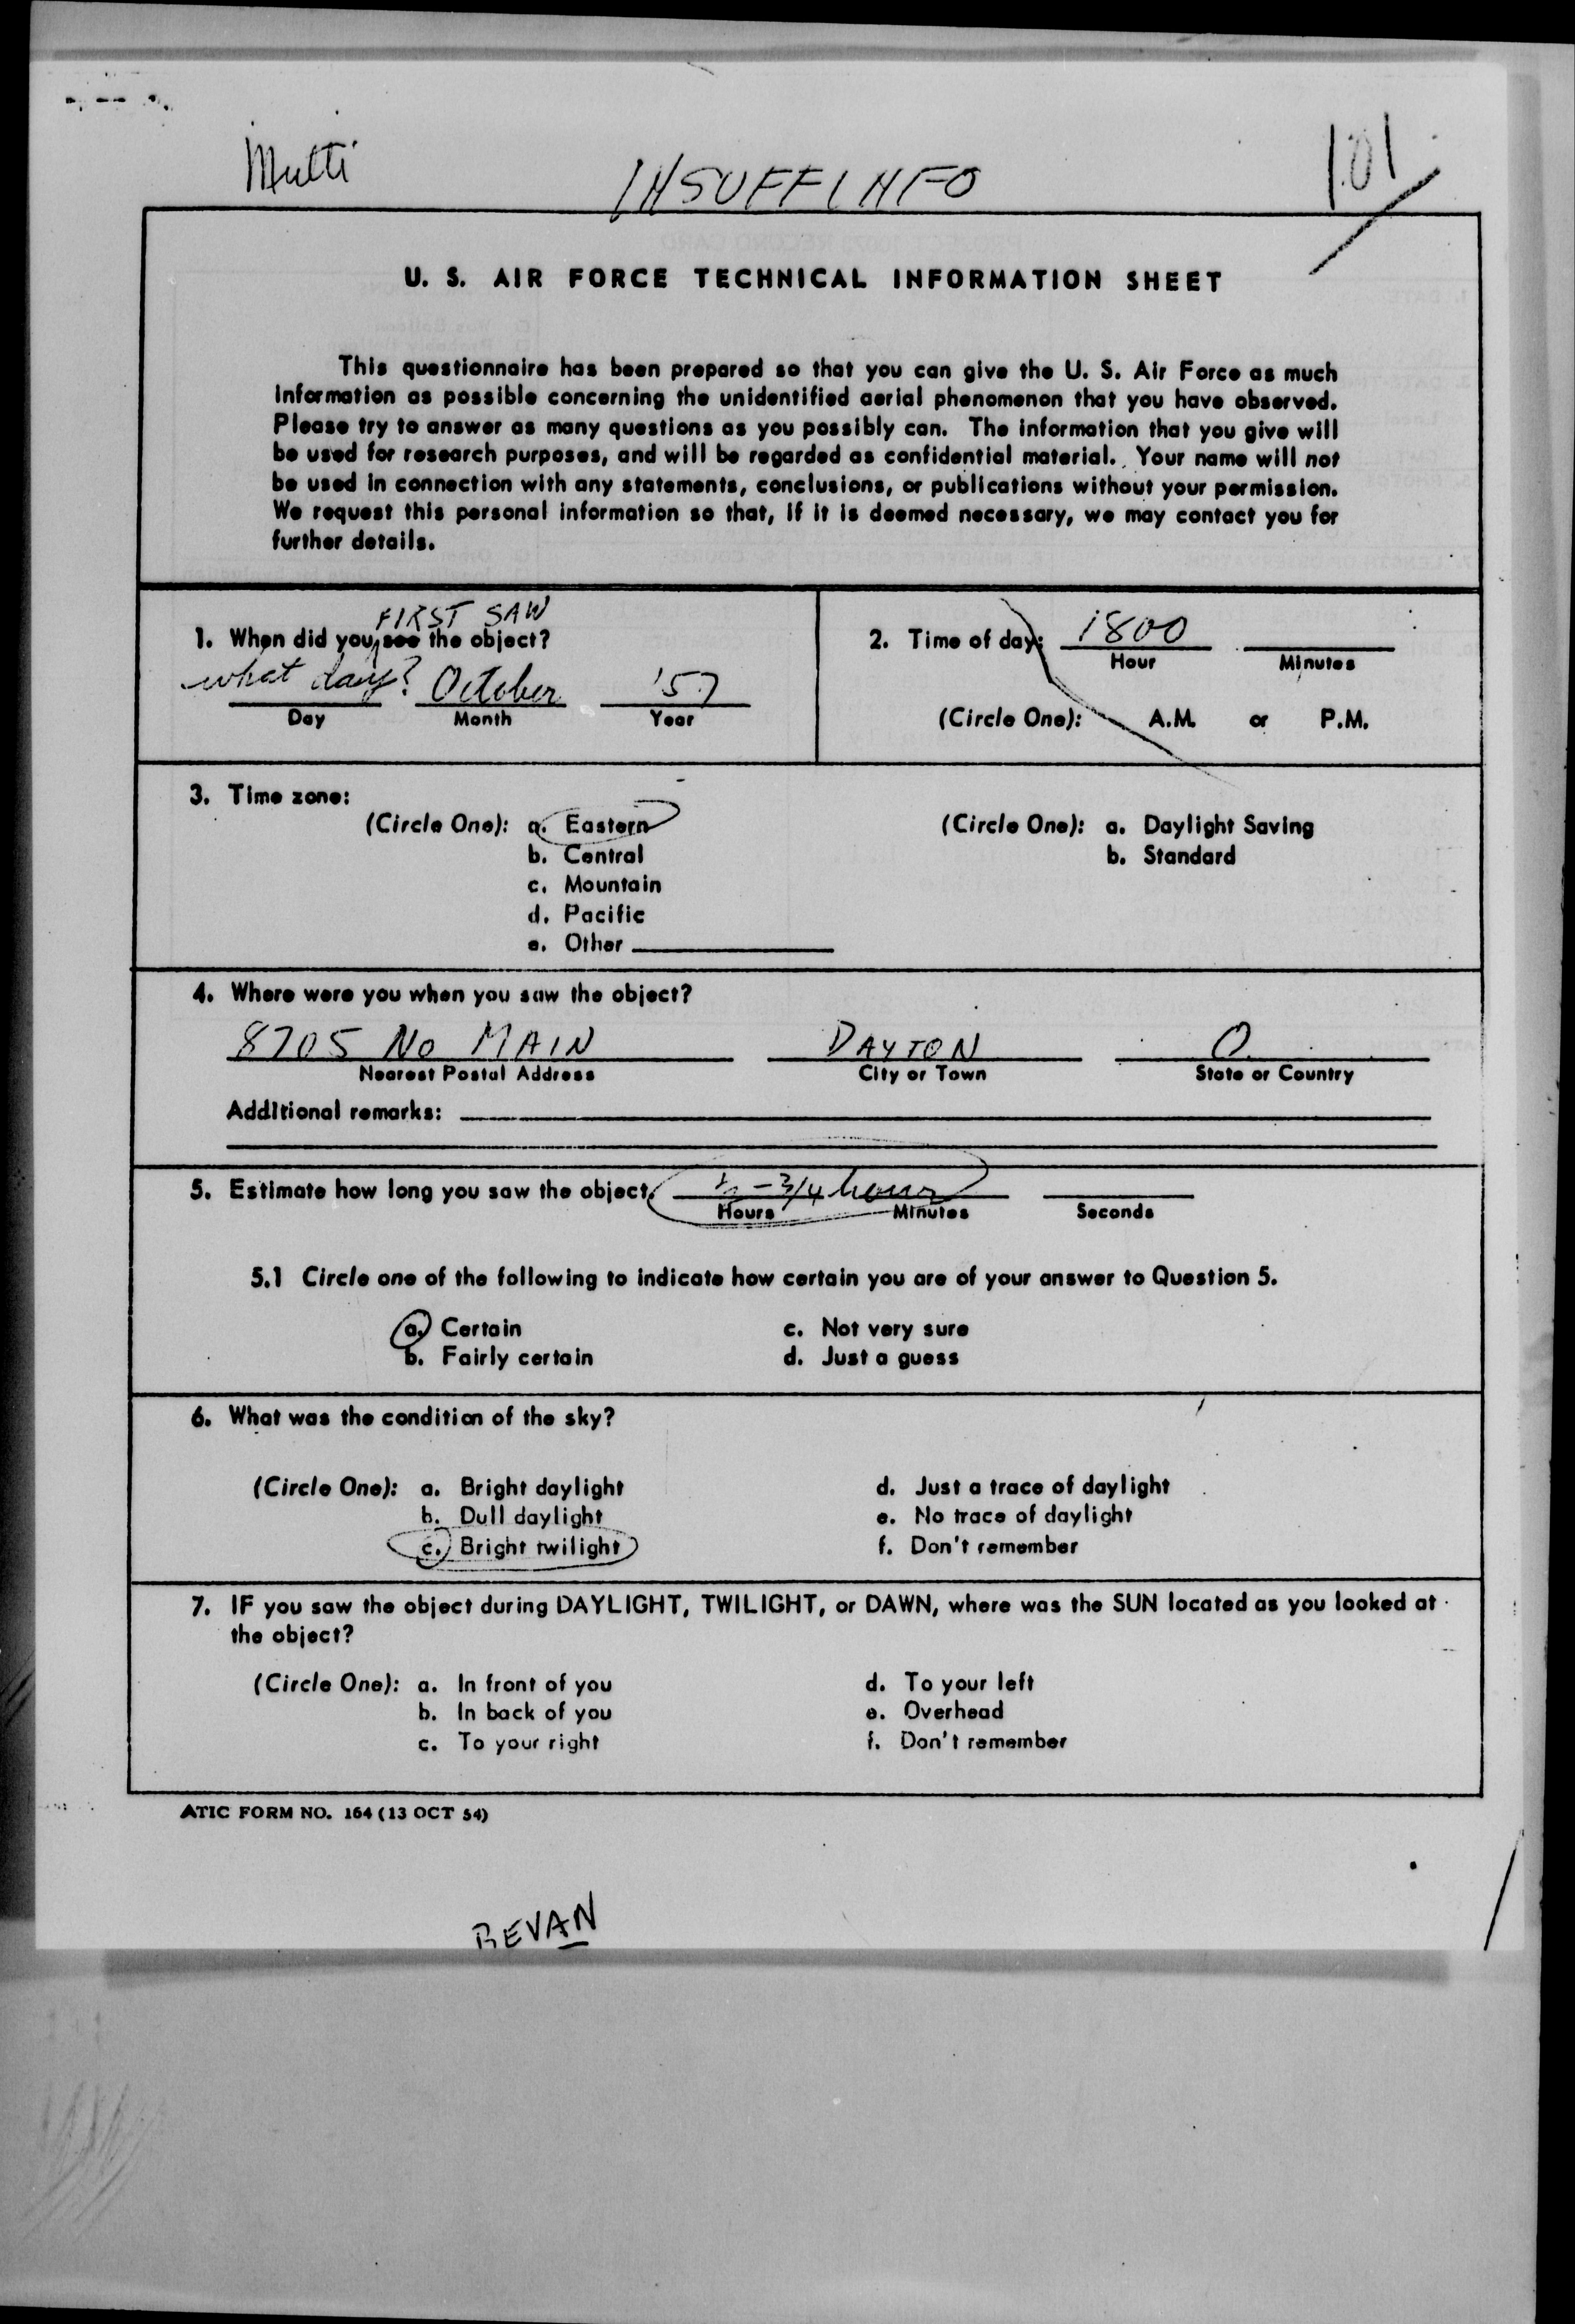 Multi
INSUFF INFO
101
U. S. AIR FORCE TECHNICAL INFORMATION SHEET
This questionnaire has been prepared so that you can give the U. S. Air Force as much
information as possible concerning the unidentified aerial phenomenon that you have observed.
Please try to answer as many questions as you possibly can. The information that you give will
be used for research purposes, and will be regarded as confidential material. Your name will not
be used in connection with any statements, conclusions, or publications without your permission.
We request this personal information so that, if it is deemed necessary, we may contact you for
further details.
FIRST SAW
1. When did you see the object?
what day? October '57
Day Month Year
2. Time of day: 1800
Hour Minutes
(Circle One): A.M. or P.M.
3. Time zone:
(Circle One): a. Eastern
b. Central
c. Mountain
d. Pacific
e. Other
(Circle One): a. Daylight Saving
b. Standard
4. Where were you when you saw the object?
8705 No MAIN DAYTON O.
Nearest Postal Address City or Town State or Country
Additional remarks:
5. Estimate how long you saw the object. ½ - 3/4 hour
Hours Minutes Seconds
5.1 Circle one of the following to indicate how certain you are of your answer to Question 5.
a. Certain c. Not very sure
b. Fairly certain d. Just a guess
6. What was the condition of the sky?
(Circle One): a. Bright daylight d. Just a trace of daylight
b. Dull daylight e. No trace of daylight
c. Bright twilight f. Don't remember
7. IF you saw the object during DAYLIGHT, TWILIGHT, or DAWN, where was the SUN located as you looked at
the object?
(Circle One): a. In front of you d. To your left
b. In back of you e. Overhead
c. To your right f. Don't remember
ATIC FORM NO. 164 (13 OCT 54)
BEVAN